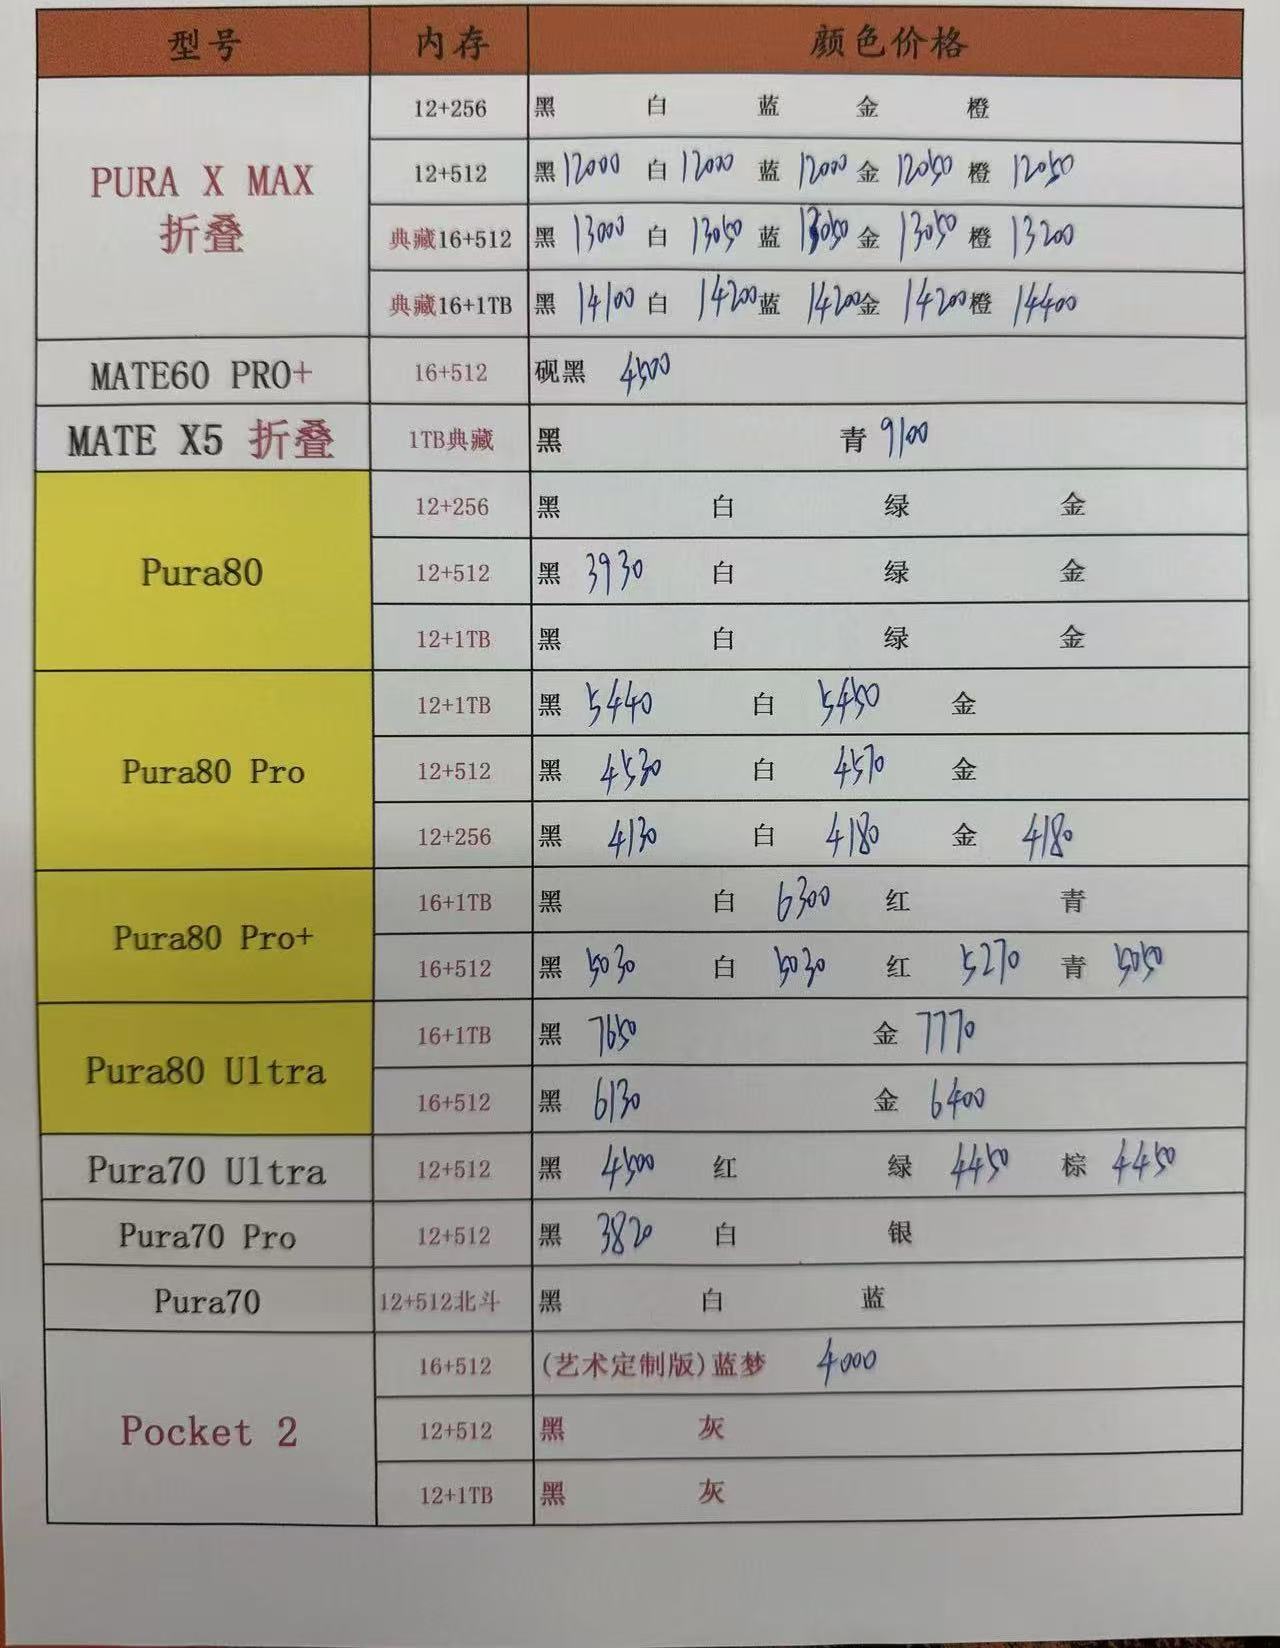 型号 内存 颜色价格
PURA X MAX 折叠
12+256 黑 白 蓝 金 橙
12+512 黑 12000 白 12000 蓝 12000 金 12050 橙 12050
典藏16+512 黑 13000 白 13050 蓝 13050 金 13050 橙 13200
典藏16+1TB 黑 14100 白 14200 蓝 14200 金 14200 橙 14400
MATE60 PRO+ 16+512 砚黑 4500
MATE X5 折叠 1TB典藏 黑 青 9100
Pura80
12+256 黑 白 绿 金
12+512 黑 3930 白 绿 金
12+1TB 黑 白 绿 金
Pura80 Pro
12+1TB 黑 5440 白 5450 金
12+512 黑 4530 白 4570 金
12+256 黑 4130 白 4180 金 4180
Pura80 Pro+
16+1TB 黑 白 6300 红 青
16+512 黑 5030 白 5030 红 5270 青 5050
Pura80 Ultra
16+1TB 黑 7650 金 7770
16+512 黑 6130 金 6400
Pura70 Ultra 12+512 黑 4500 红 绿 4450 棕 4450
Pura70 Pro 12+512 黑 3820 白 银
Pura70 12+512北斗 黑 白 蓝
Pocket 2
16+512 (艺术定制版)蓝梦 4000
12+512 黑 灰
12+1TB 黑 灰